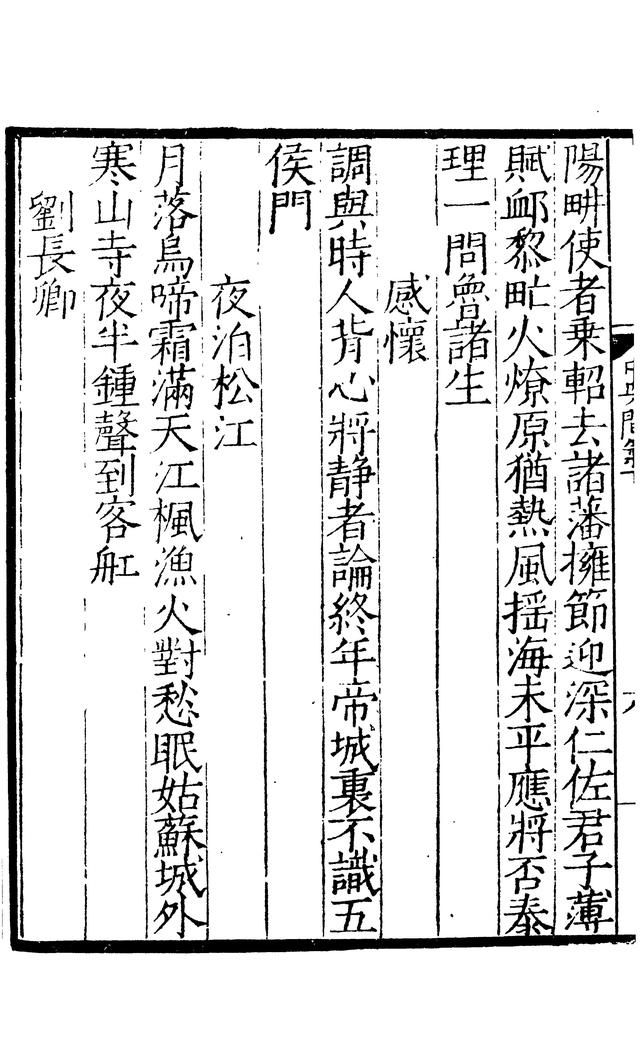 陽畊使者乗軺去諸藩擁節迎深仁佐君子薄
賦䘏黎甿火燎原猶熱風揺海未平應將否泰
理一問魯諸生
感懷
調與時人背心將静者論終年帝城裏不識五
侯門
夜泊松江
月落烏啼霜滿天江楓漁火對愁眠姑蘇城外
寒山寺夜半鍾聲到客舡
劉長卿